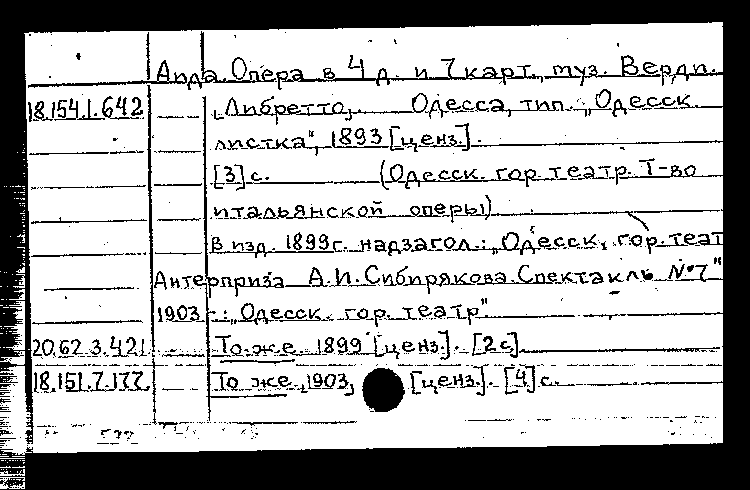 Аида. Опера в 4 д. и 7 карт., муз. Верди.
18.154.1.642 „Либретто„. Одесса, тип. „Одесск.
листка", 1893 [ценз.].
[3] с. (Одесск. гор. театр. Т-во
итальянской оперы)
В изд. 1899 г. надзагол.: „Одесск. гор. теат
Антерприза А.И. Сибирякова. Спектакль №7"
1903 -: „Одесск. гор. театр"
20.62.3.421 То же 1899 [ценз.]. [2 с].
18.151.7.177. То же, 1903, [ценз.]. [4] с.